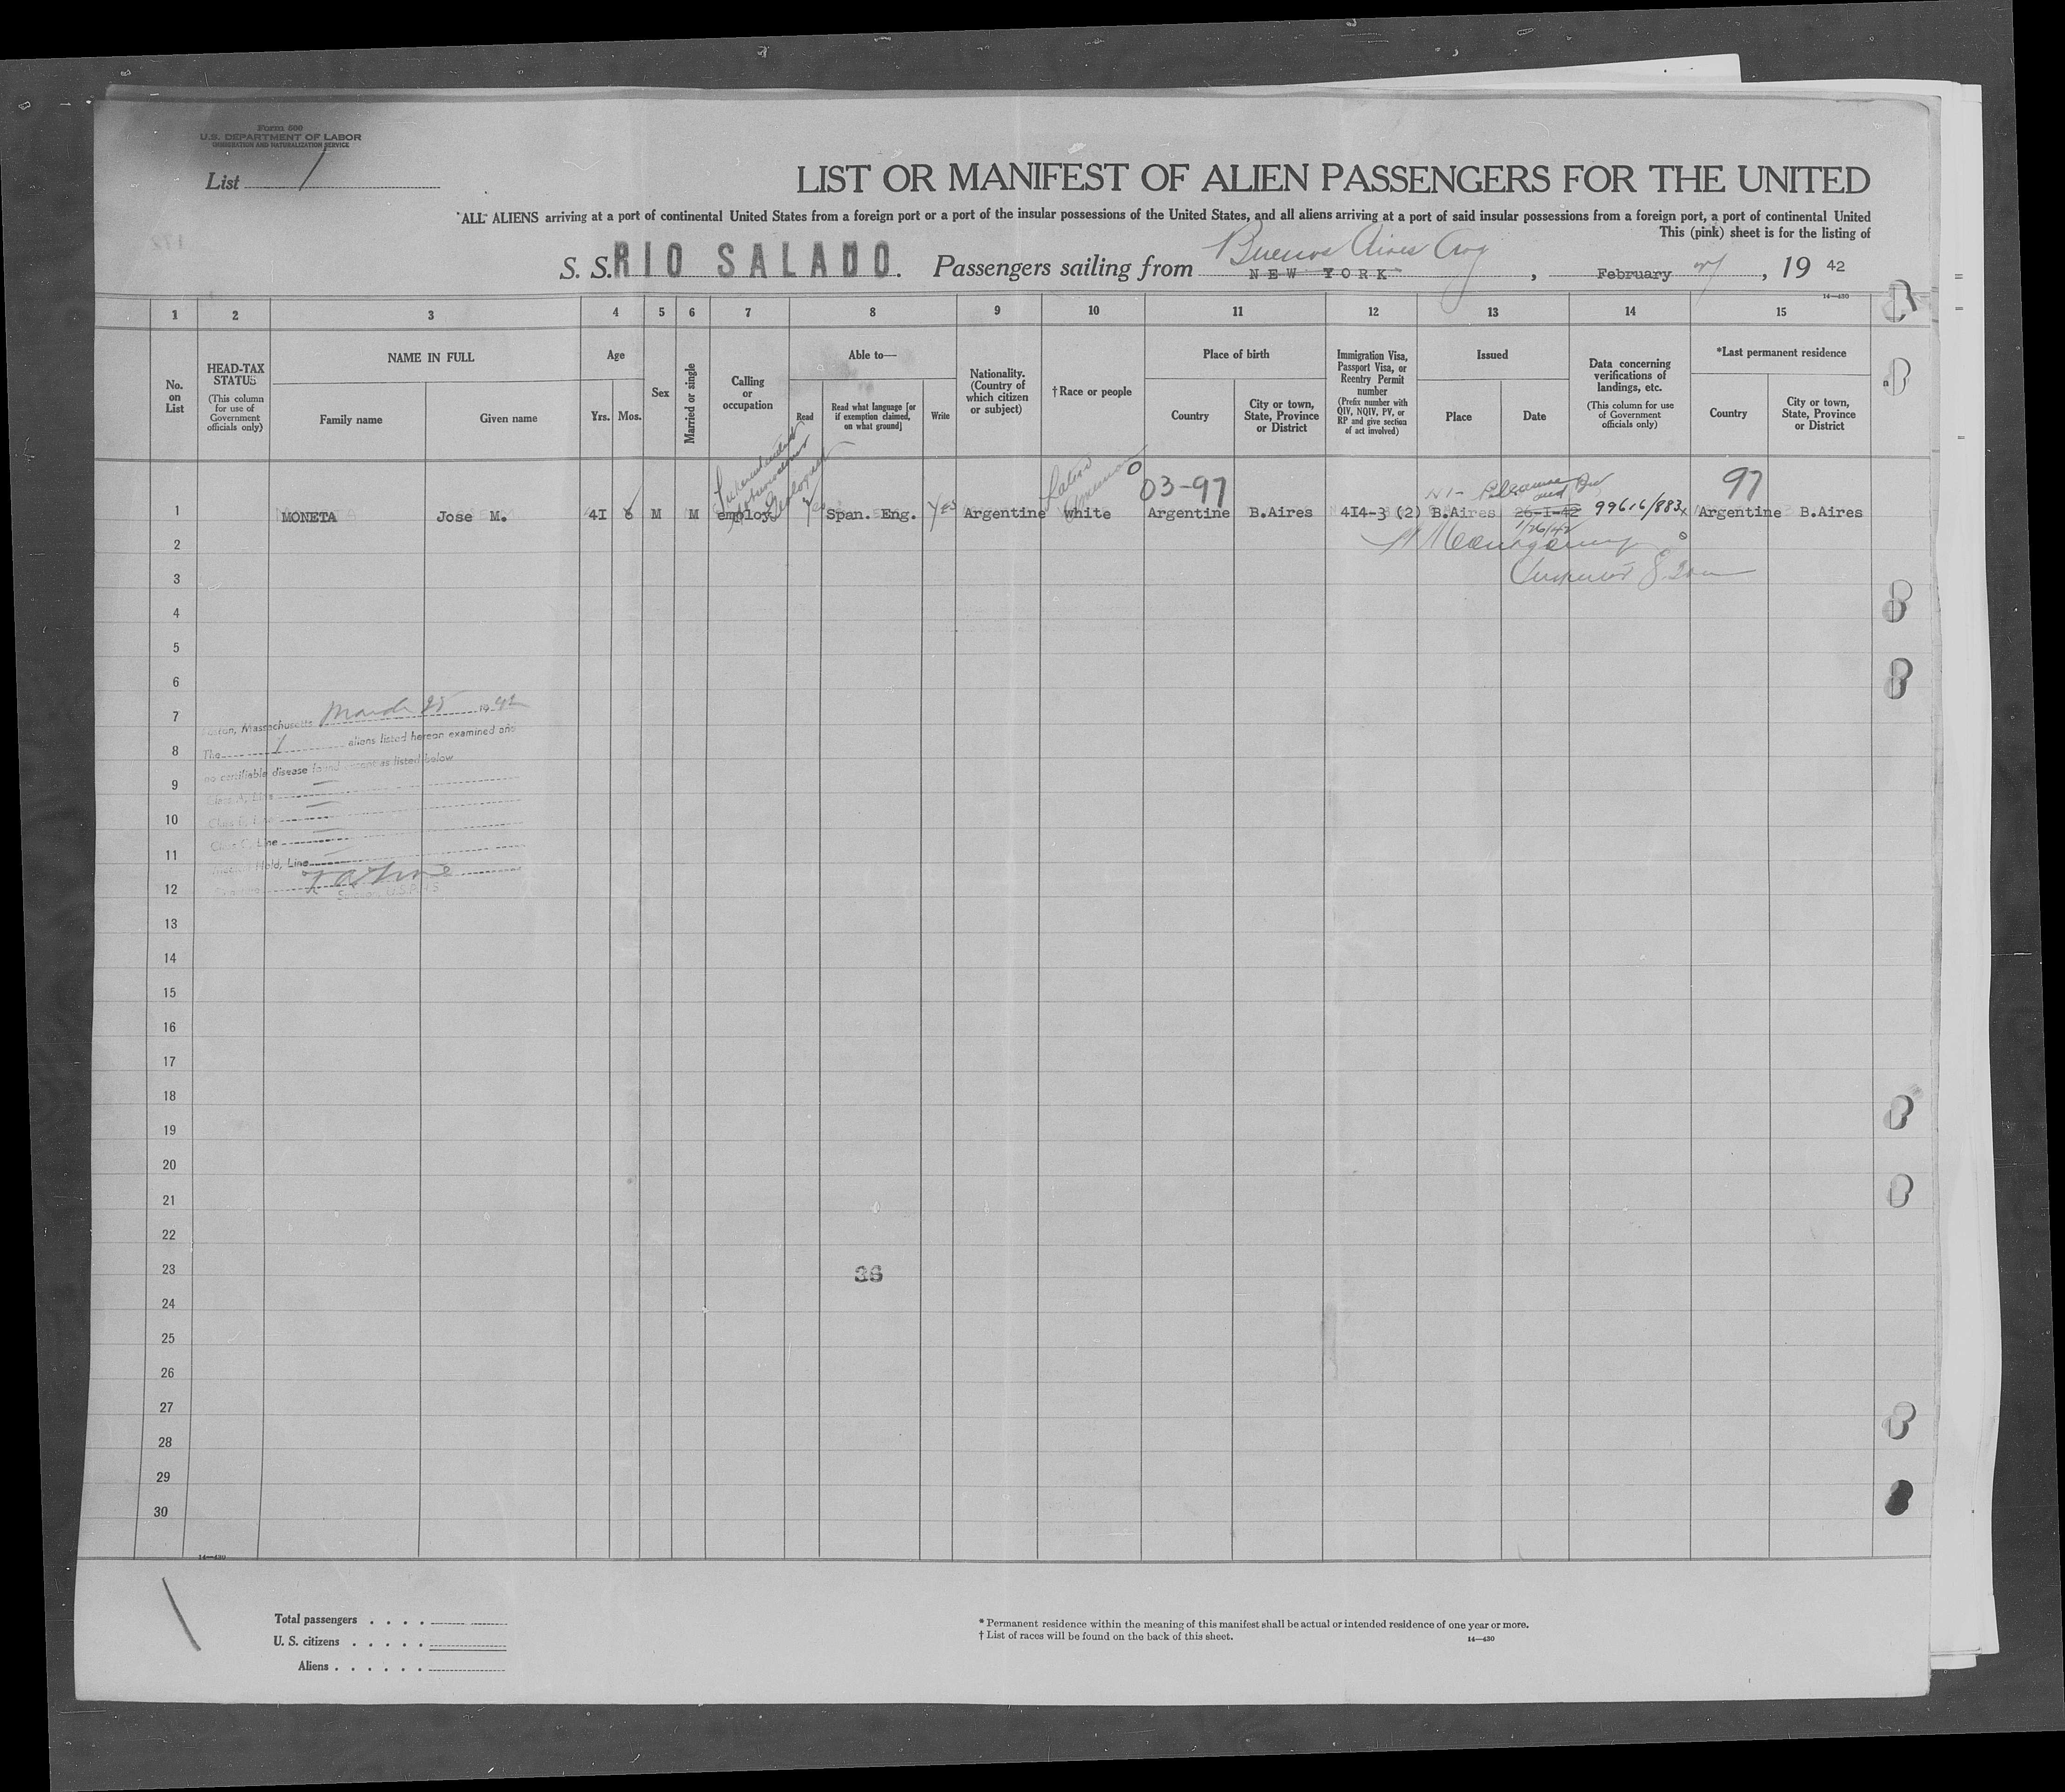 Form 500
U.S. DEPARTMENT OF LABOR
IMMIGRATION AND NATURALIZATION SERVICE
List 1
LIST OR MANIFEST OF ALIEN PASSENGERS FOR THE UNITED
ALL ALIENS arriving at a port of continental United States from a foreign port or a port of the insular possessions of the United States, and all aliens arriving at a port of said insular possessions from a foreign port, a port of continental United
This (pink) sheet is for the listing of
172
Buenos Aires Arg
S. S. RIO SALADO. Passengers sailing from NEW YORK, February, 19 42
14—430
1 2 3 4 5 6 7 8 9 10 11 12 13 14 15
No. on List
HEAD-TAX STATUS
(This column for use of Government officials only)
NAME IN FULL
Family name
Given name
Age
Yrs.
Mos.
Sex
Married or single
Calling or occupation
Able to—
Read
Read what language [or if exemption claimed, on what ground]
Write
Nationality. (Country of which citizen or subject)
†Race or people
Place of birth
Country
City or town, State, Province or District
Immigration Visa, Passport Visa, or Reentry Permit number
(Prefix number with QIV, NQIV, PV, or RP and give section of act involved)
Issued
Place
Date
Data concerning verifications of landings, etc.
(This column for use of Government officials only)
*Last permanent residence
Country
City or town, State, Province or District
Latin American
03-97
97
1 MONETA Jose M. 41 6 M M employ. Yes Span. Eng. Yes Argentine white Argentine B.Aires 414-3 (2) B.Aires 26-I-42 99616/883 Argentine B.Aires
1/26/42
2
3
4
5
6
7
8
9
10
11
12
13
14
15
16
17
18
19
20
21
22
23
24
25
26
27
28
29
30
Boston, Massachusetts March 25 1942
The 1 aliens listed hereon examined and
no certifiable disease found except as listed below
Class A, Line
Class B, Line
Class C, Line
Held, Line
Surgeon, U.S.P.H.S.
36
14—430
Total passengers . . . .
U. S. citizens . . . . .
Aliens . . . . . .
* Permanent residence within the meaning of this manifest shall be actual or intended residence of one year or more.
† List of races will be found on the back of this sheet.
14—430